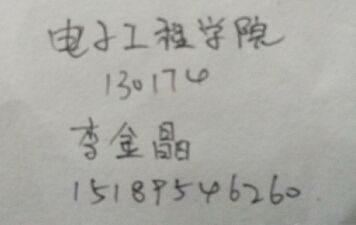 电子工程学院
130174
李金晶
15189546260